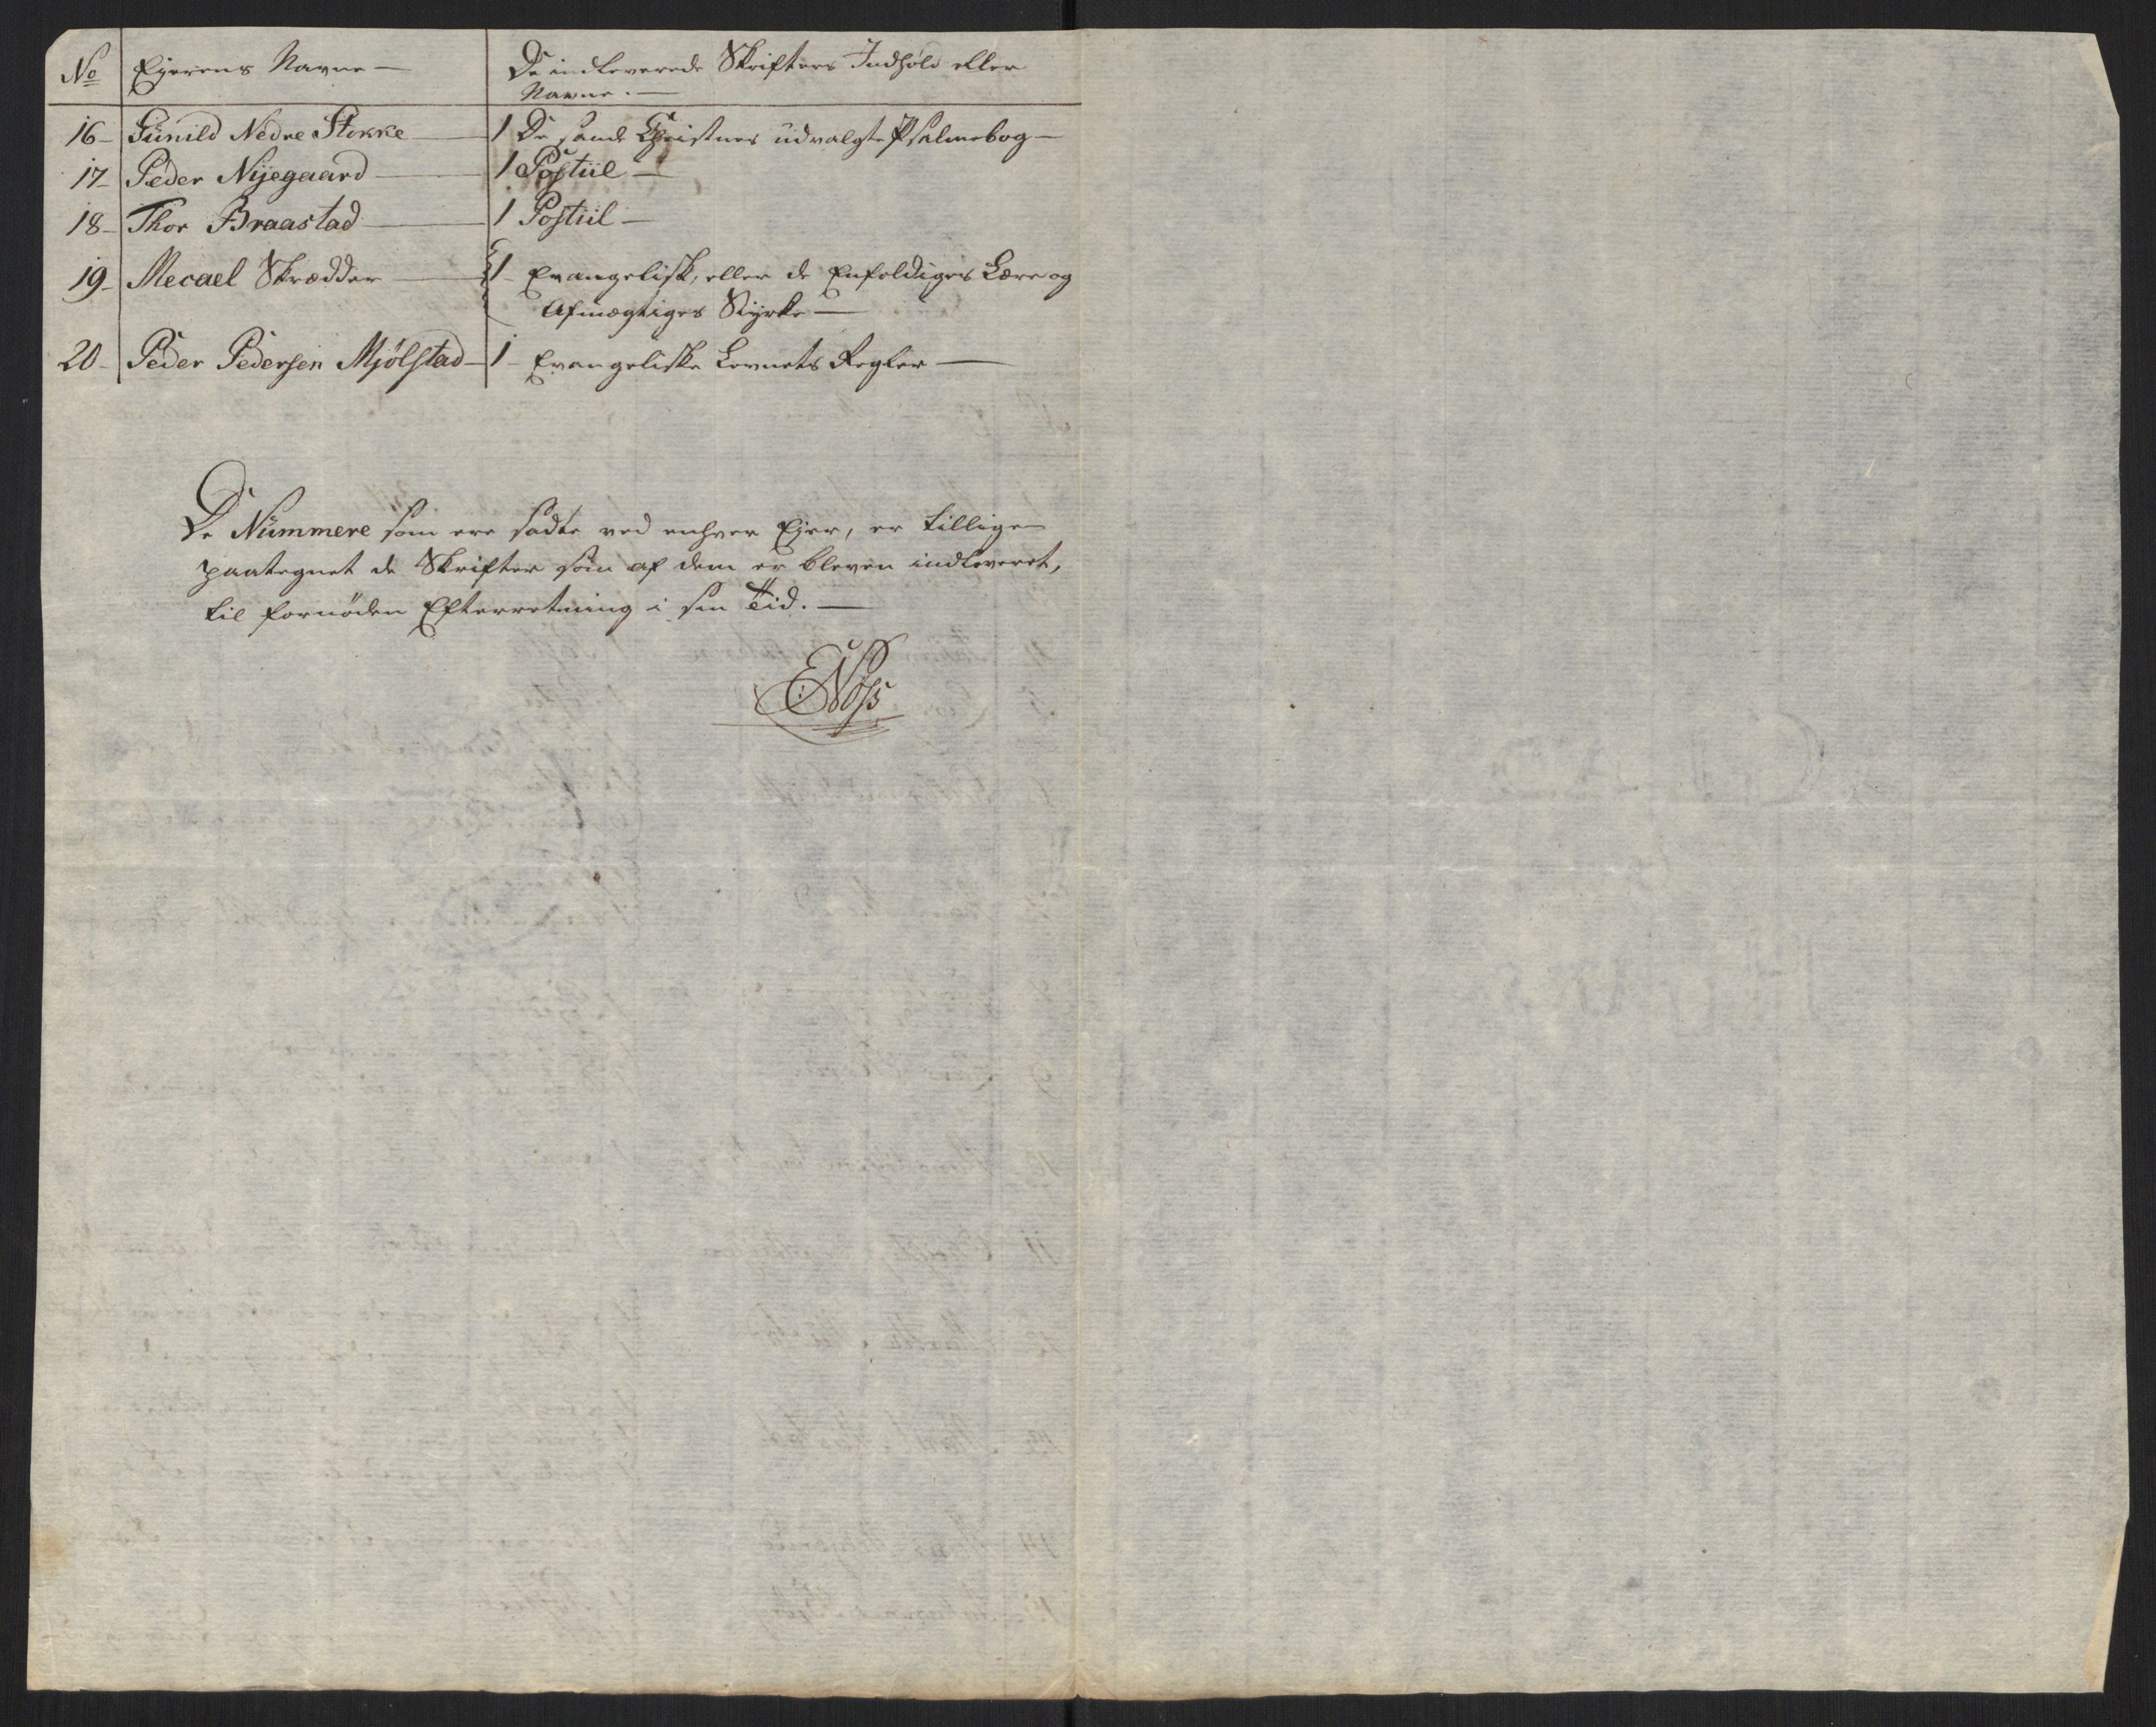 No Ejerens Navne — De indleverede Skrifters Indhold eller
Navne. —
16 – Gunild Nedre Stokke — 1 De sande Christnes udvalgte Psalmebog —
17 – Peder Nÿegaard — 1 Postiil —
18 – Thor Braastad — 1 Postiil —
19 – Mecael Skrædder — 1 – Evangelisk, eller de Enfoldiges Lære og
Afmægtiges Styrke —
20 – Peder Pedersen Mjölstad – 1 – Evangeliske Levnets Regler —
De Nummere som ere sadte ved enhver Ejer, er tillige
paategnet de Skrifter som af dem er bleven indleveret,
til fornöden Efterretning i sin Tid. —